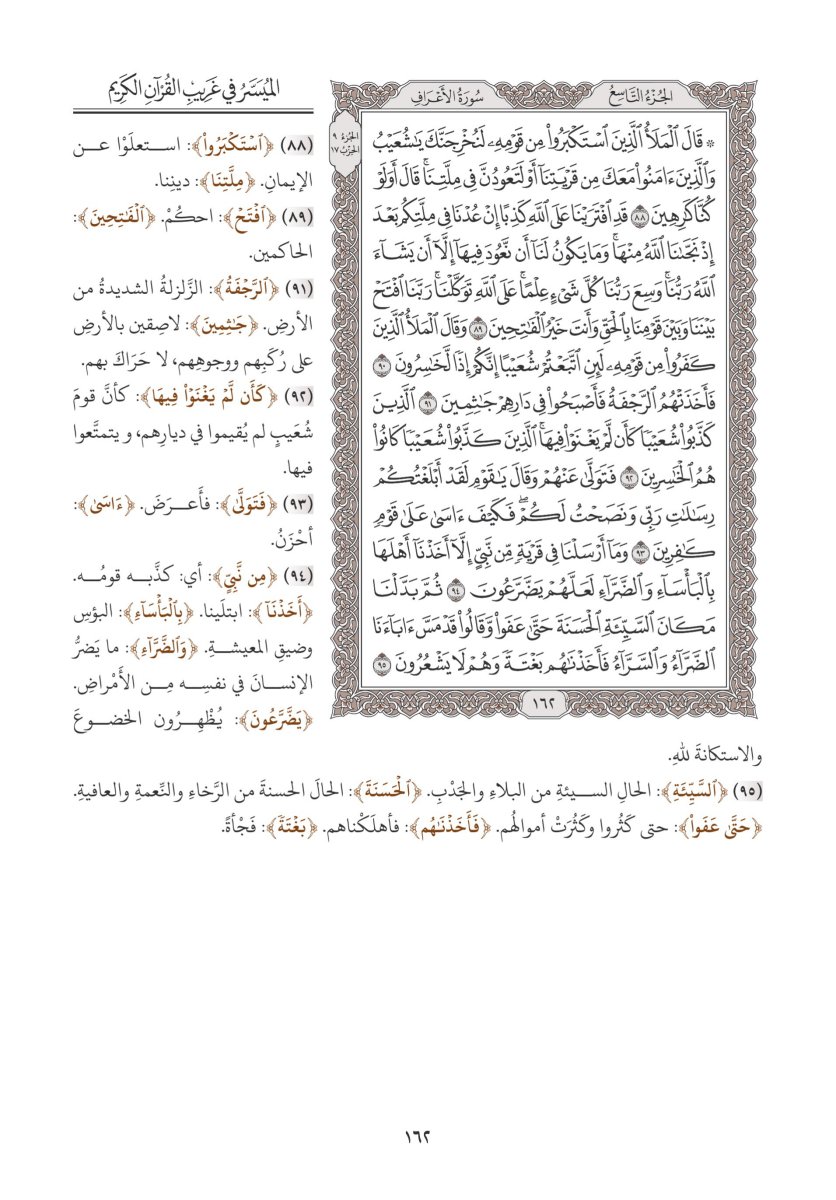 الجُزْءُ التَّاسِعُ
سُورَةُ الأَعْرَافِ
المُيَسَّرُ في غَرِيبِ القُرْآنِ الكَرِيمِ
الجُزءُ ٩
الحِزْبُ ١٧
۞ قَالَ ٱلْمَلَأُ ٱلَّذِينَ ٱسْتَكْبَرُوا۟ مِن قَوْمِهِۦ لَنُخْرِجَنَّكَ يَٰشُعَيْبُ
وَٱلَّذِينَ ءَامَنُوا۟ مَعَكَ مِن قَرْيَتِنَآ أَوْ لَتَعُودُنَّ فِى مِلَّتِنَا ۚ قَالَ أَوَلَوْ
كُنَّا كَٰرِهِينَ ٨٨ قَدِ ٱفْتَرَيْنَا عَلَى ٱللَّهِ كَذِبًا إِنْ عُدْنَا فِى مِلَّتِكُم بَعْدَ
إِذْ نَجَّىٰنَا ٱللَّهُ مِنْهَا ۚ وَمَا يَكُونُ لَنَآ أَن نَّعُودَ فِيهَآ إِلَّآ أَن يَشَآءَ
ٱللَّهُ رَبُّنَا ۚ وَسِعَ رَبُّنَا كُلَّ شَىْءٍ عِلْمًا ۚ عَلَى ٱللَّهِ تَوَكَّلْنَا ۚ رَبَّنَا ٱفْتَحْ
بَيْنَنَا وَبَيْنَ قَوْمِنَا بِٱلْحَقِّ وَأَنتَ خَيْرُ ٱلْفَٰتِحِينَ ٨٩ وَقَالَ ٱلْمَلَأُ ٱلَّذِينَ
كَفَرُوا۟ مِن قَوْمِهِۦ لَئِنِ ٱتَّبَعْتُمْ شُعَيْبًا إِنَّكُمْ إِذًا لَّخَٰسِرُونَ ٩٠
فَأَخَذَتْهُمُ ٱلرَّجْفَةُ فَأَصْبَحُوا۟ فِى دَارِهِمْ جَٰثِمِينَ ٩١ ٱلَّذِينَ
كَذَّبُوا۟ شُعَيْبًا كَأَن لَّمْ يَغْنَوْا۟ فِيهَا ۚ ٱلَّذِينَ كَذَّبُوا۟ شُعَيْبًا كَانُوا۟
هُمُ ٱلْخَٰسِرِينَ ٩٢ فَتَوَلَّىٰ عَنْهُمْ وَقَالَ يَٰقَوْمِ لَقَدْ أَبْلَغْتُكُمْ
رِسَٰلَٰتِ رَبِّى وَنَصَحْتُ لَكُمْ ۖ فَكَيْفَ ءَاسَىٰ عَلَىٰ قَوْمٍ
كَٰفِرِينَ ٩٣ وَمَآ أَرْسَلْنَا فِى قَرْيَةٍ مِّن نَّبِىٍّ إِلَّآ أَخَذْنَآ أَهْلَهَا
بِٱلْبَأْسَآءِ وَٱلضَّرَّآءِ لَعَلَّهُمْ يَضَّرَّعُونَ ٩٤ ثُمَّ بَدَّلْنَا
مَكَانَ ٱلسَّيِّئَةِ ٱلْحَسَنَةَ حَتَّىٰ عَفَوا۟ وَّقَالُوا۟ قَدْ مَسَّ ءَابَآءَنَا
ٱلضَّرَّآءُ وَٱلسَّرَّآءُ فَأَخَذْنَٰهُم بَغْتَةً وَهُمْ لَا يَشْعُرُونَ ٩٥
١٦٢
(٨٨) ﴿ٱسْتَكْبَرُوا۟﴾: استعلَوْا عن
الإيمانِ. ﴿مِلَّتِنَا﴾: دينِنا.
(٨٩) ﴿ٱفْتَحْ﴾: احكُمْ. ﴿ٱلْفَٰتِحِينَ﴾:
الحاكمين.
(٩١) ﴿ٱلرَّجْفَةُ﴾: الزَّلزلةُ الشديدةُ من
الأرضِ. ﴿جَٰثِمِينَ﴾: لاصِقين بالأرضِ
على رُكَبِهم ووجوهِهم، لا حَرَاكَ بهم.
(٩٢) ﴿كَأَن لَّمْ يَغْنَوْا۟ فِيهَا﴾: كأنَّ قومَ
شُعَيبٍ لم يُقيموا في ديارِهم، ويتمتَّعوا
فيها.
(٩٣) ﴿فَتَوَلَّىٰ﴾: فأَعرَضَ. ﴿ءَاسَىٰ﴾:
أحْزَنُ.
(٩٤) ﴿مِن نَّبِىٍّ﴾: أي: كذَّبه قومُه.
﴿أَخَذْنَآ﴾: ابتلَينا. ﴿بِٱلْبَأْسَآءِ﴾: البؤسِ
وضيقِ المعيشةِ. ﴿وَٱلضَّرَّآءِ﴾: ما يَضرُّ
الإنسانَ في نفسِه مِن الأَمْراضِ.
﴿يَضَّرَّعُونَ﴾: يُظْهِرُون الخضوعَ
والاستكانةَ للهِ.
(٩٥) ﴿ٱلسَّيِّئَةِ﴾: الحالِ السيئةِ من البلاءِ والجَدْبِ. ﴿ٱلْحَسَنَةَ﴾: الحالَ الحسنةَ من الرَّخاءِ والنِّعمةِ والعافيةِ.
﴿حَتَّىٰ عَفَوا۟﴾: حتى كَثُروا وكَثُرَتْ أموالُهم. ﴿فَأَخَذْنَٰهُم﴾: فأهلَكْناهم. ﴿بَغْتَةً﴾: فَجْأةً.
١٦٢